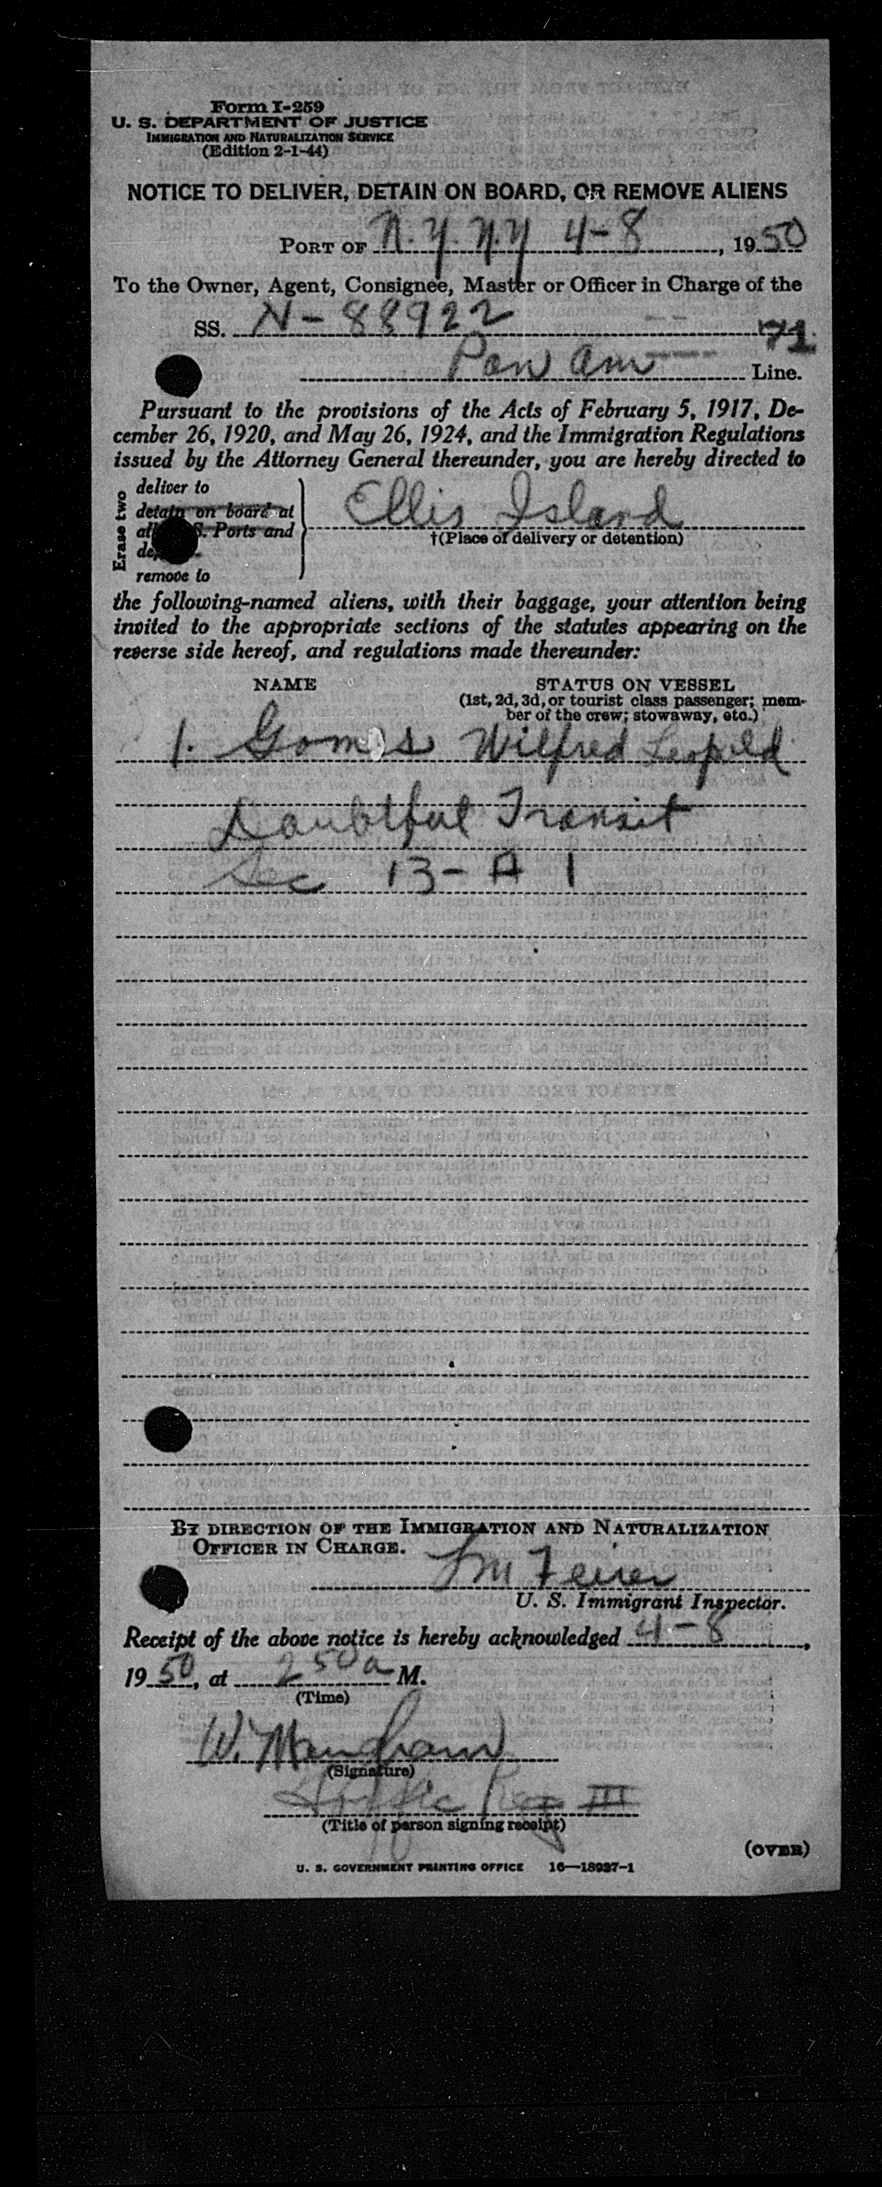 Form I-259
U. S. DEPARTMENT OF JUSTICE
IMMIGRATION AND NATURALIZATION SERVICE
(Edition 2-1-44)
NOTICE TO DELIVER, DETAIN ON BOARD, OR REMOVE ALIENS
PORT OF N.Y. N.Y 4-8, 1950
To the Owner, Agent, Consignee, Master or Officer in Charge of the
SS. N-88922
71
Pan Am Line.
Pursuant to the provisions of the Acts of February 5, 1917, De-
cember 26, 1920, and May 26, 1924, and the Immigration Regulations
issued by the Attorney General thereunder, you are hereby directed to
Erase two
deliver to
detain on board at
S. Ports and
remove to
Ellis Island
†(Place of delivery or detention)
the following-named aliens, with their baggage, your attention being
invited to the appropriate sections of the statutes appearing on the
reverse side hereof, and regulations made thereunder:
NAME STATUS ON VESSEL
(1st, 2d, 3d, or tourist class passenger; mem-
ber of the crew; stowaway, etc.)
1. Gomes Wilfred Leopold
Doubtful Transit
Sec 13-A 1
BY DIRECTION OF THE IMMIGRATION AND NATURALIZATION
OFFICER IN CHARGE.
U. S. Immigrant Inspector.
Receipt of the above notice is hereby acknowledged 4-8,
1950, at 250a M.
(Time)
W.
(Signature)
Traffic Rep III
(Title of person signing receipt)
(OVER)
U. S. GOVERNMENT PRINTING OFFICE 16—18937-1